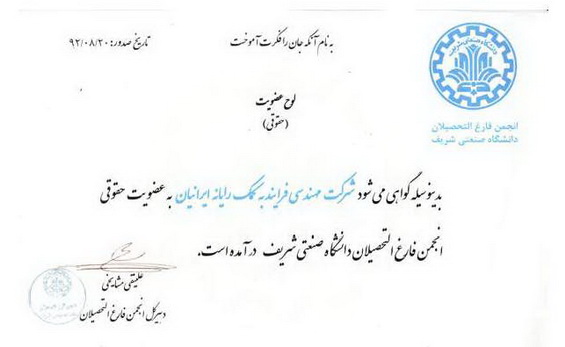 به نام آنکه جان را فکرت آموخت
تاریخ صدور: ۹۲/۰۸/۲۰
دانشگاه صنعتی شریف
انجمن فارغ التحصیلان
دانشگاه صنعتی شریف
لوح عضویت
(حقوقی)
بدینوسیله گواهی می شود شرکت مهندسی فرایند به کمک رایانه ایرانیان به عضویت حقوقی
انجمن فارغ التحصیلان دانشگاه صنعتی شریف در آمده است.
علینقی مشایخی
دبیرکل انجمن فارغ التحصیلان